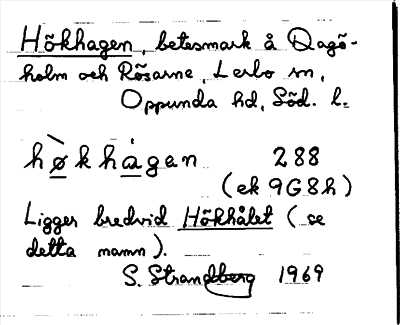 Hökhagen, betesmark å Dagö-
holm och Rösarne, Lerbo sn,
Oppunda hd, Söd. l.
hø̀khȧgan 288
(ek 9G8h)
Ligger bredvid Hökhålet (se
detta namn).
S. Strandberg 1969